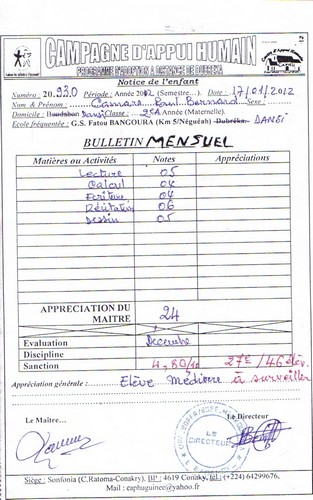 CAMPAGNE D'APPUI HUMAIN
PROGRAMME D'ADOPTION A DISTANCE DE DUBREKA
Notice de l'enfant
Numéro : 20.930 Période : Année 2012 (Semestre...). Date : 17/01/2012
Nom & Prénom : Camara Paul Bernard Sexe :
Domicile : Dansi Classe : 2èA Année (Maternelle).
Ecole fréquentée : G.S. Fatou BANGOURA (Km 5/Néguéah) Dubréka. DANSI
BULLETIN MENSUEL
Matières ou Activités Notes Appréciations
Lecture 05
Calcul 04
Ecriture 04
Récitation 06
Dessin 05
APPRECIATION DU MAITRE 24
Evaluation Decembre
Discipline
Sanction 4,80/10 27è/46 élv.
Appréciation générale : Elève Médiocre à surveiller
Le Maître... Le Directeur
LE DIRECTEUR
Siège : Sonfonia (C.Ratoma-Conakry), BP : 4619 Conaky, tel : (+224) 64299676,
Mail : caphuguinee@yahoo.fr